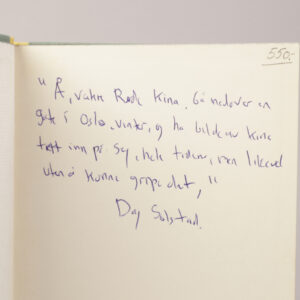 550,-
" Å, vakre Røde Kina. Gå nedover en
gate i Oslo, vinter, og ha bildet av Kina
tett inn på seg, hele tiden, men likevel
uten å kunne gripe det, "
Dag Solstad.